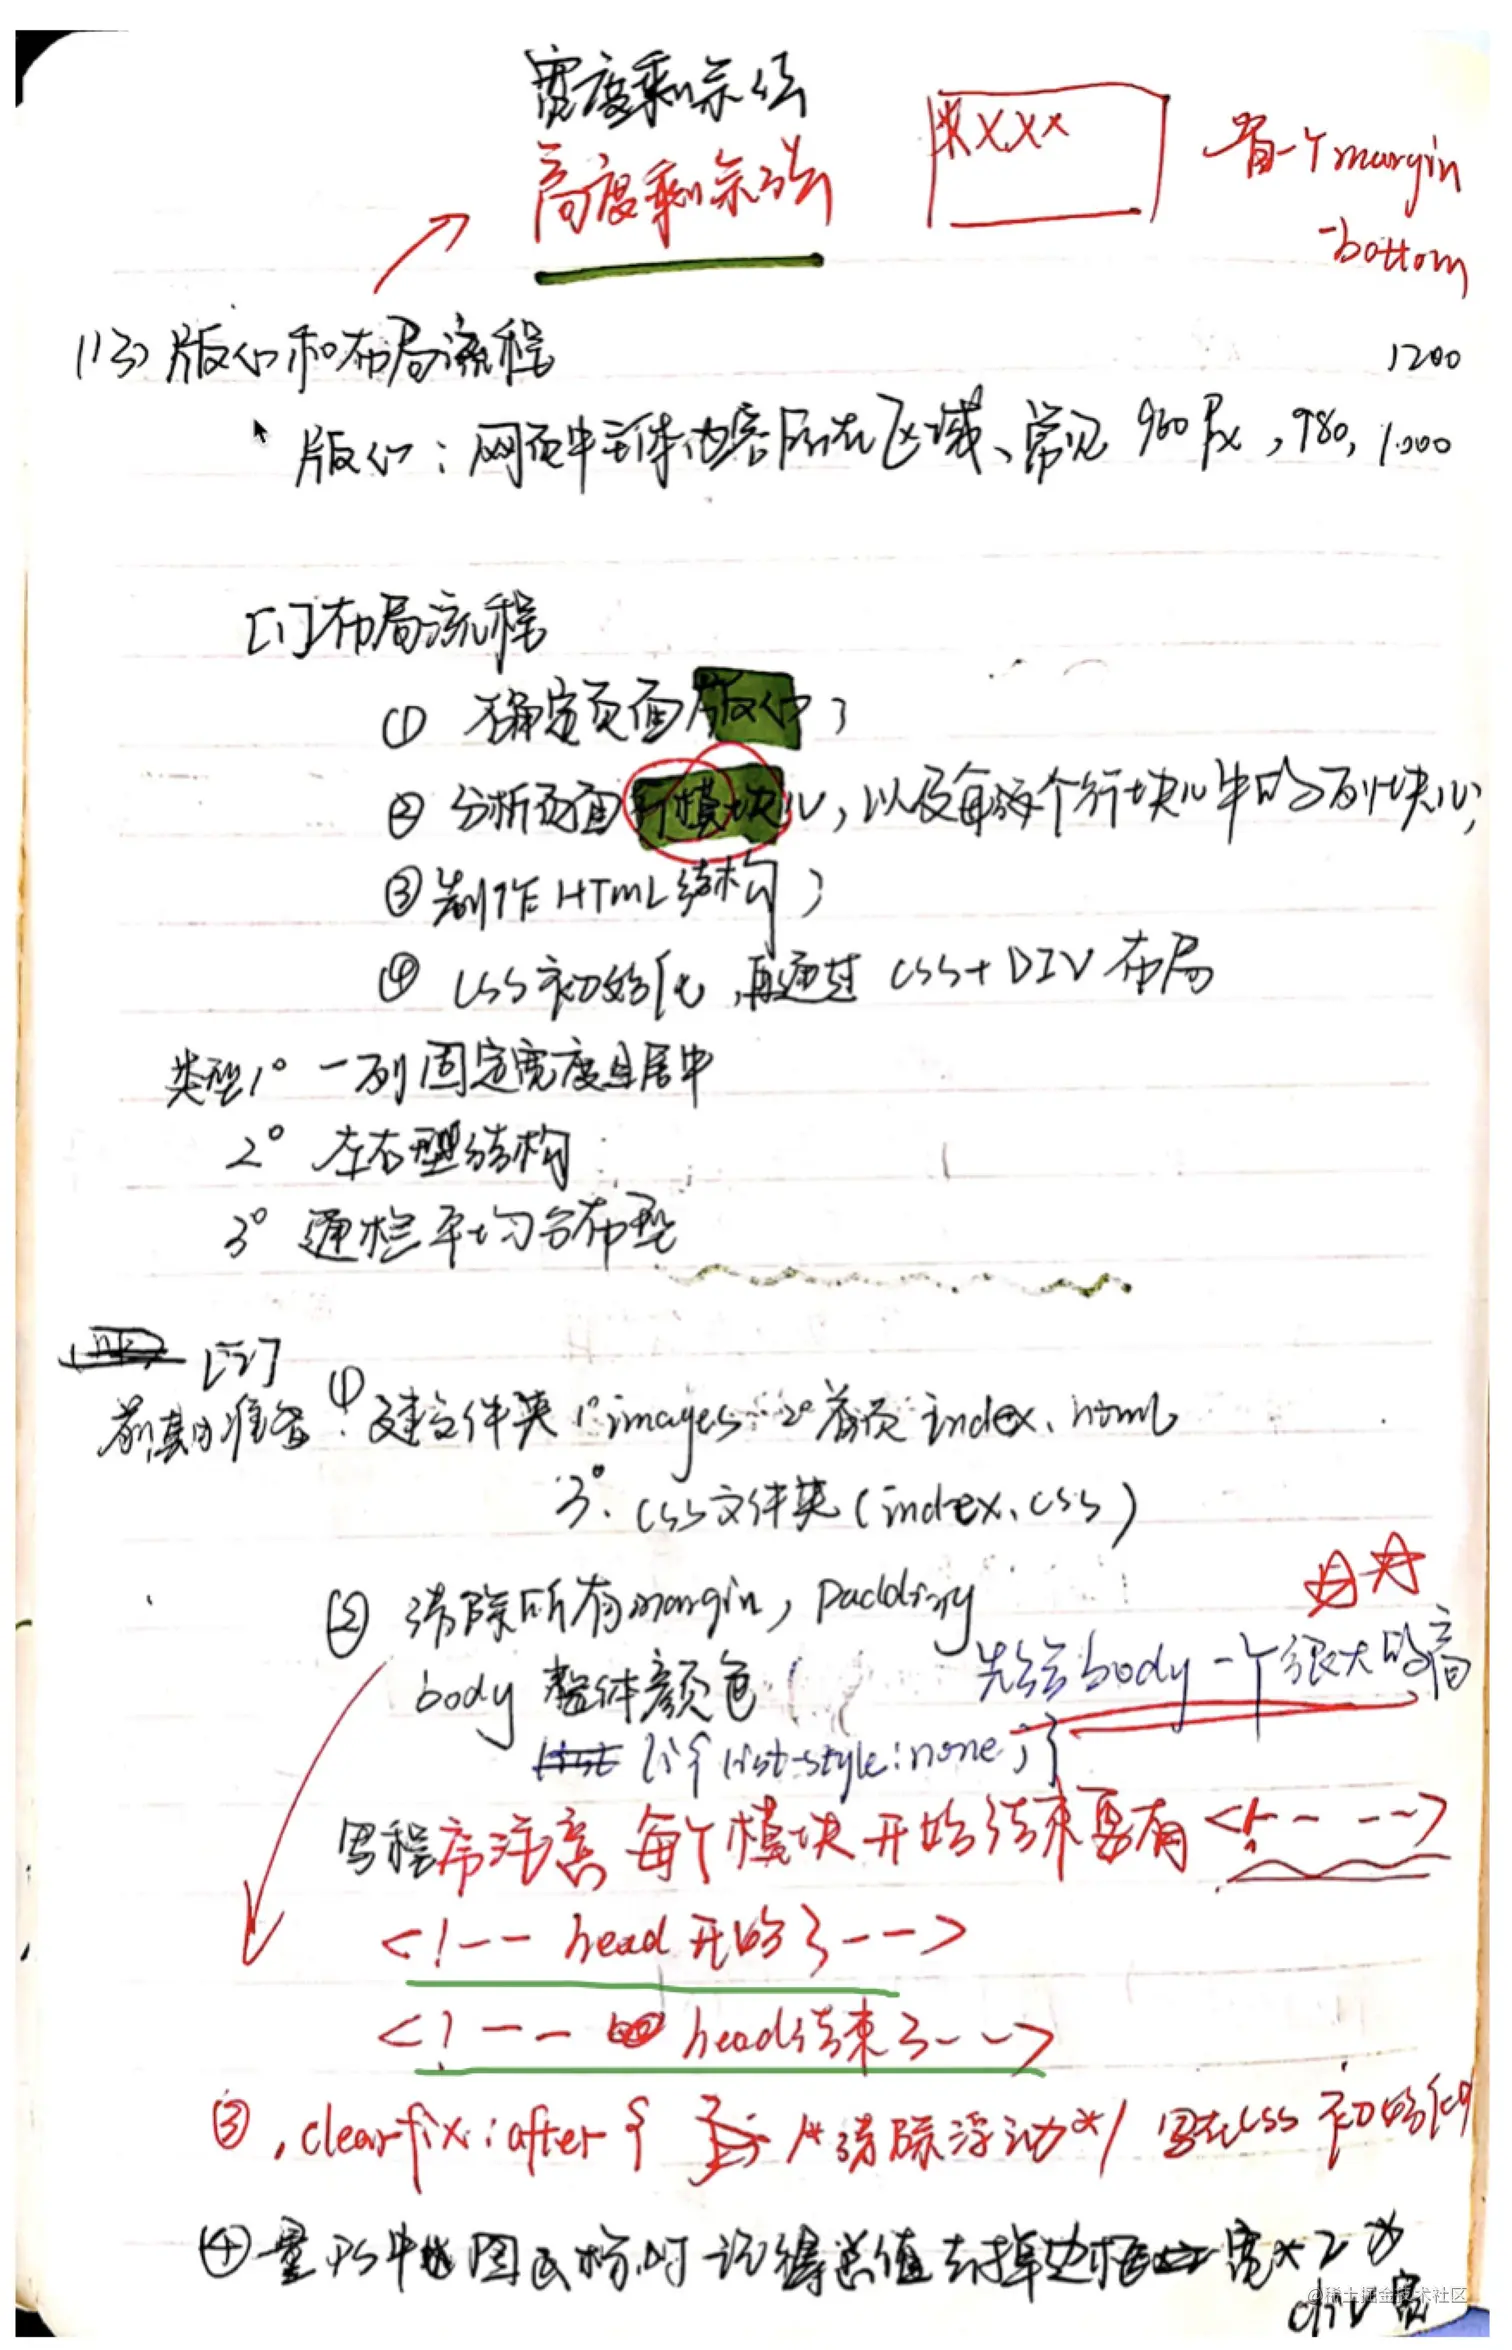 宽度剩余法
高度剩余法
XXXX
有个margin
-bottom
(13) 版心和布局流程
1200
版心：网页中主体内容所在区域、常见 960px，980，1000
[1]布局流程
① 确定页面版心；
② 分析页面行模块心，以及每个行块心中的列块心；
③制作HTML结构；
④ CSS初始化，再通过 CSS+DIV 布局
类型1° 一列固定宽度且居中
2° 左右型结构
3° 通栏平均分布型
[2]
前期准备：① 建文件夹 1°images 2°首页 index.html
3°. CSS文件夹(index.css)
② 清除所有margin，padding
body 整体颜色
先给body一个很大的高
li{list-style:none；}
写程序注意 每个模块开始结束要有 <!-- -->
<!-- head 开始了-->
<!-- head结束了-->
③ .clearfix:after{ } /*清除浮动*/ 写在CSS 初始化中
④量PS中 图 标时 记得总值去掉边框 宽×2 为
div宽
@稀土掘金技术社区